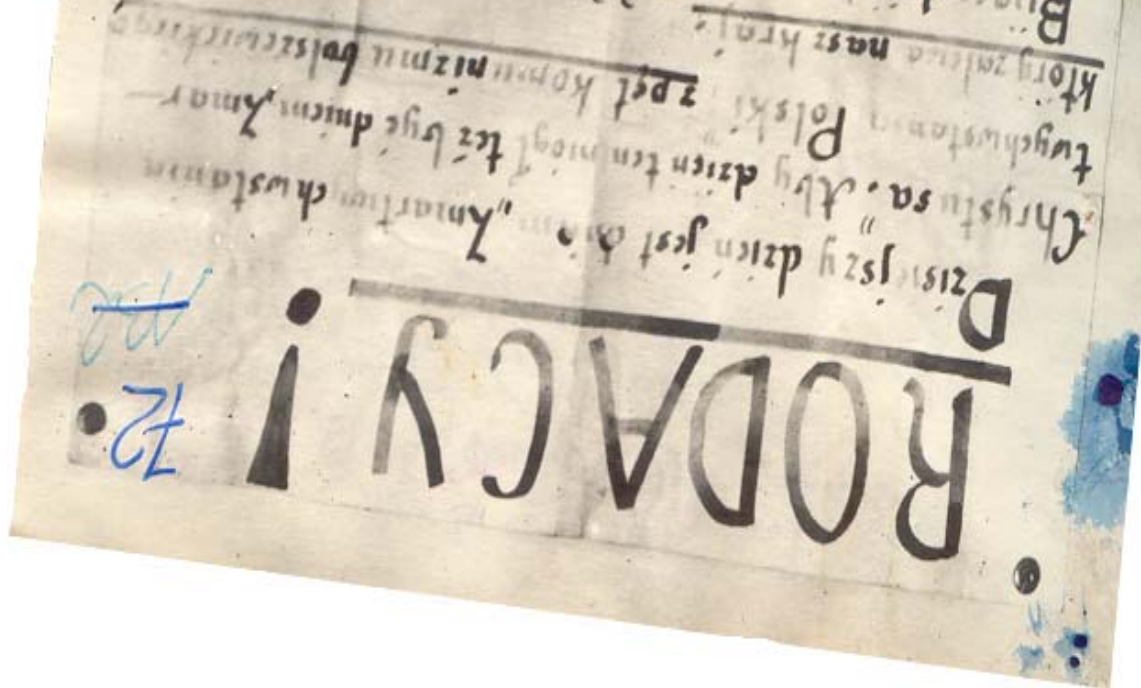 RODACY!
72
Dzisiejszy dzień jest dniem „Zmartwychwstania
Chrystusa. Aby dzień ten mógł też być dniem Zmar-
twychwstania Polski" z pęt komunizmu bolszewickiego
który zalewa nasz kraj.